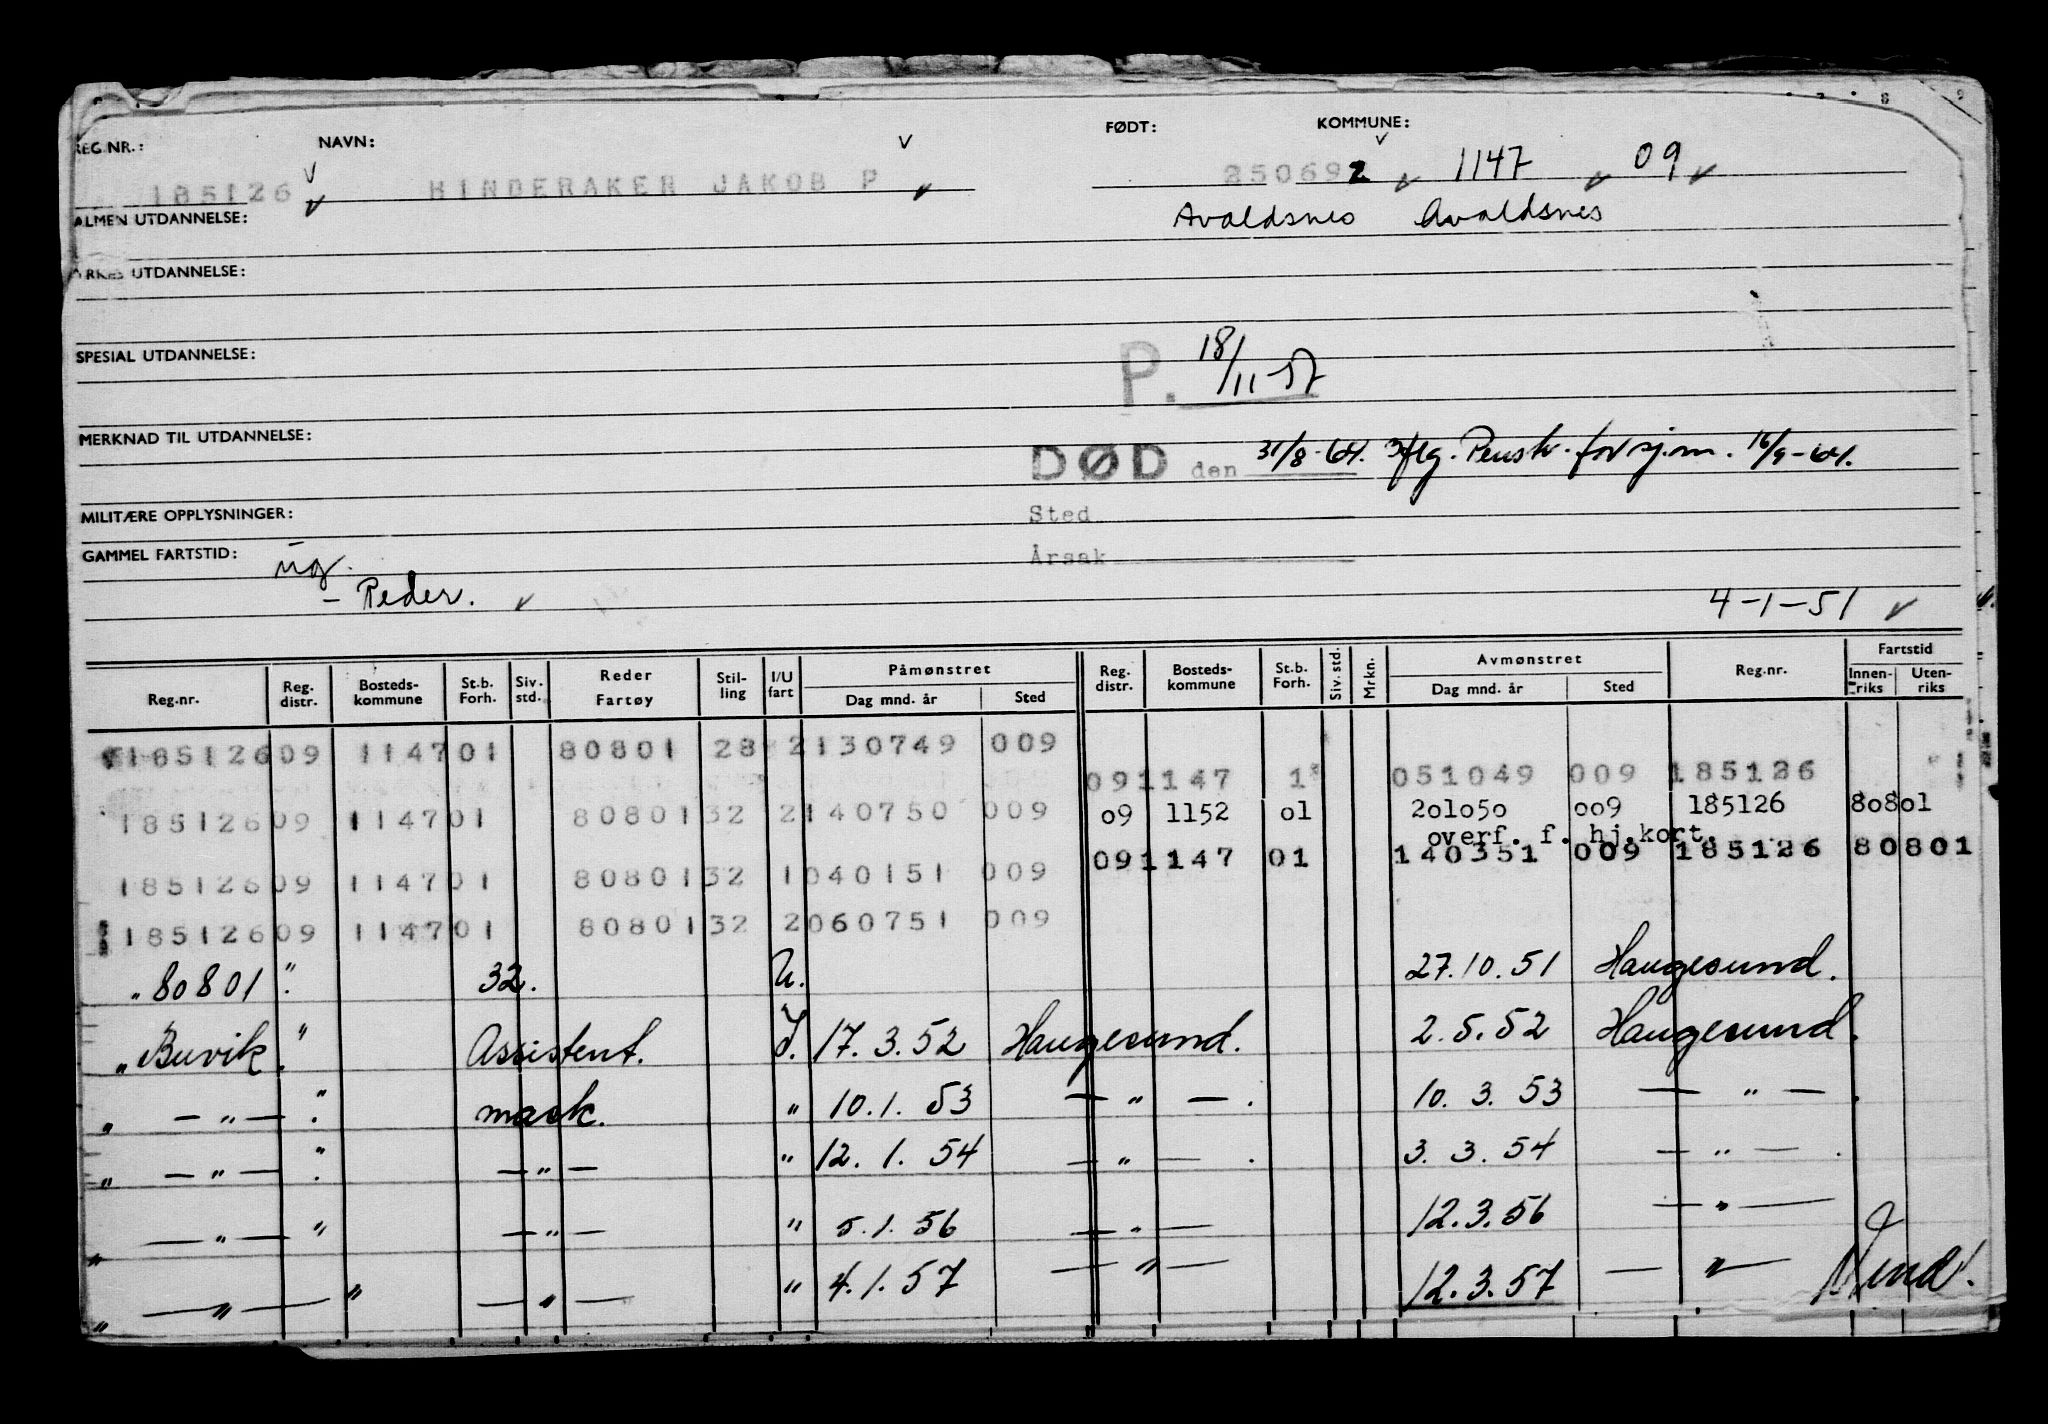 REG.NR.: NAVN: FØDT: KOMMUNE:
185126 HINDERAKER JAKOB P 250692 1147 09
ALMEN UTDANNELSE: Avaldsnes Avaldsnes
YRKES UTDANNELSE:
SPESIAL UTDANNELSE:
P. 18/11-57
MERKNAD TIL UTDANNELSE:
DØD den 31/8-64. iflg. Penstr. for sjøm. 16/9-64.
MILITÆRE OPPLYSNINGER: Sted
GAMMEL FARTSTID: Årsak
- Peder. 4-1-51
Reg.nr. Reg. distr. Bosteds-kommune St.b. Forh. Siv. std. Reder Fartøy Stil-ling I/U fart Påmønstret Dag mnd. år Sted Reg. distr. Bosteds-kommune St.b. Forh. Siv. std. Mrkn. Avmønstret Dag mnd. år Sted Reg.nr. Fartstid Innen-riks Uten-riks
185126 09 1147 01 80801 28 2 130749 009
09 1147 1 051049 009 185126
185126 09 1147 01 80801 32 2 140750 009 09 1152 01 201050 009 185126 80801
overf. f. hj.kort.
09 1147 01 140351 009 185126 80801
185126 09 1147 01 80801 32 1 040151 009
185126 09 1147 01 80801 32 2 060751 009
" 80801 " 32. U. 27.10.51 Haugesund.
" Buvik " Assistent. I. 17.3.52 Haugesund. 2.5.52 Haugesund.
" — " — " mask. " 10.1.53 — " — 10.3.53 — " —
" — " — " — " — " 12.1.54 — " — 3.3.54 — " —
" — " — " — " — " 5.1.56 — " — 12.3.56 — " —
" — " — " — " — " 4.1.57 — " — 12.3.57 — " — Vend!